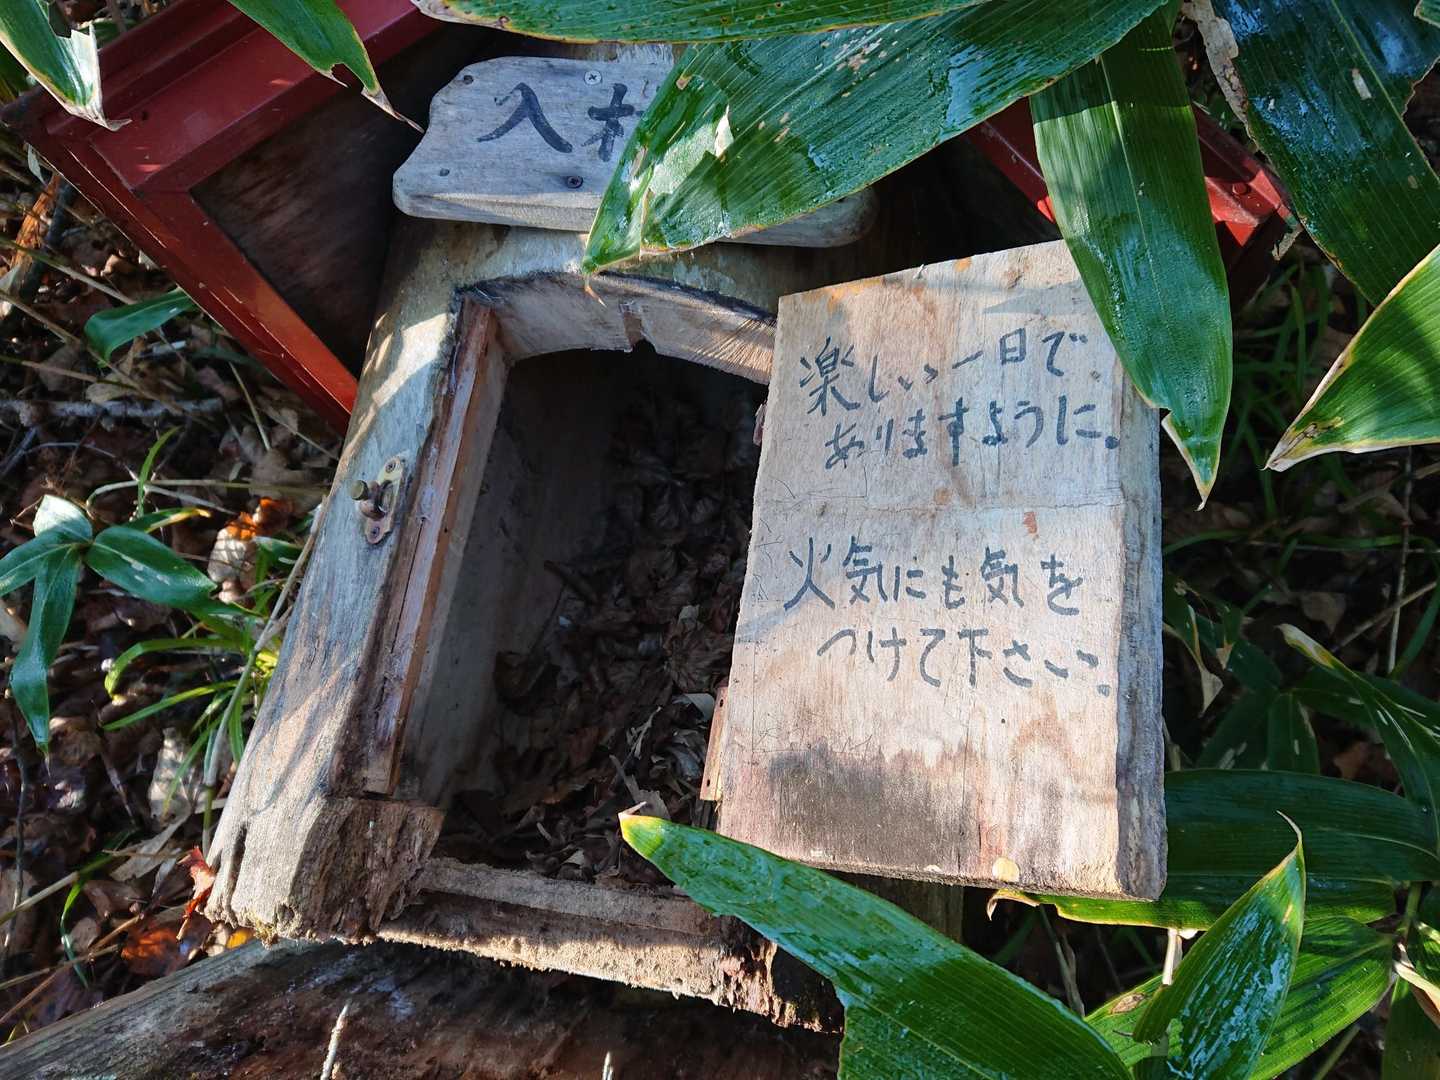 入林
楽しい一日で、
ありますように。
火気にも気を
つけて下さい。